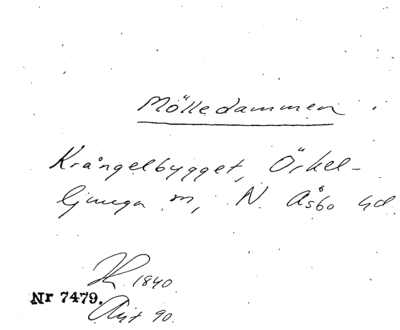 Mölledammen
Krångelbygget, Örkel-
ljunga sn, N. Åsbo hd.
K. 1840
Nr 7479.
Avst 90.